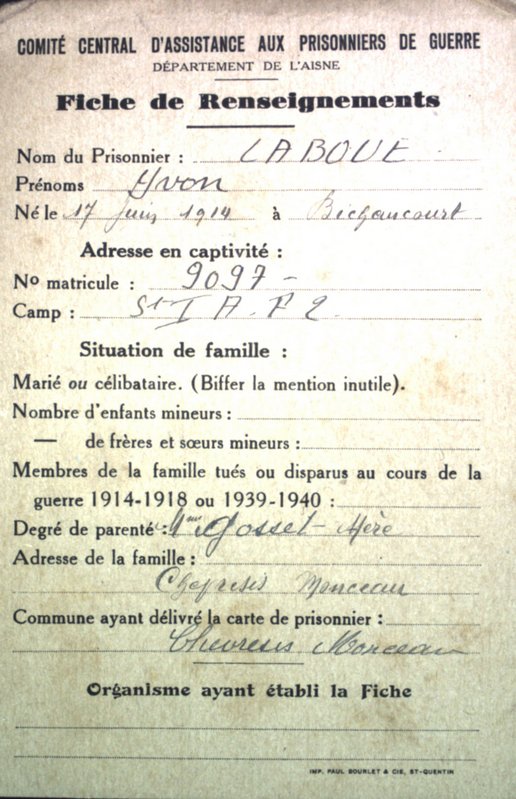 COMITÉ CENTRAL D'ASSISTANCE AUX PRISONNIERS DE GUERRE
DÉPARTEMENT DE L'AISNE
Fiche de Renseignements
Nom du Prisonnier : LABOUE
Prénoms Yvon
Né le 17 Juin 1914 à Bichancourt
Adresse en captivité :
No matricule : 9097 -
Camp : St I A. F 2
Situation de famille :
Marié ou célibataire. (Biffer la mention inutile).
Nombre d'enfants mineurs :
— de frères et sœurs mineurs :
Membres de la famille tués ou disparus au cours de la
guerre 1914-1918 ou 1939-1940 :
Degré de parenté : Mme Gosset Mère
Adresse de la famille :
Monceau
Commune ayant délivré la carte de prisonnier :
Chevresis Monceau
Organisme ayant établi la Fiche
IMP. PAUL BOURLET & CIE, ST-QUENTIN